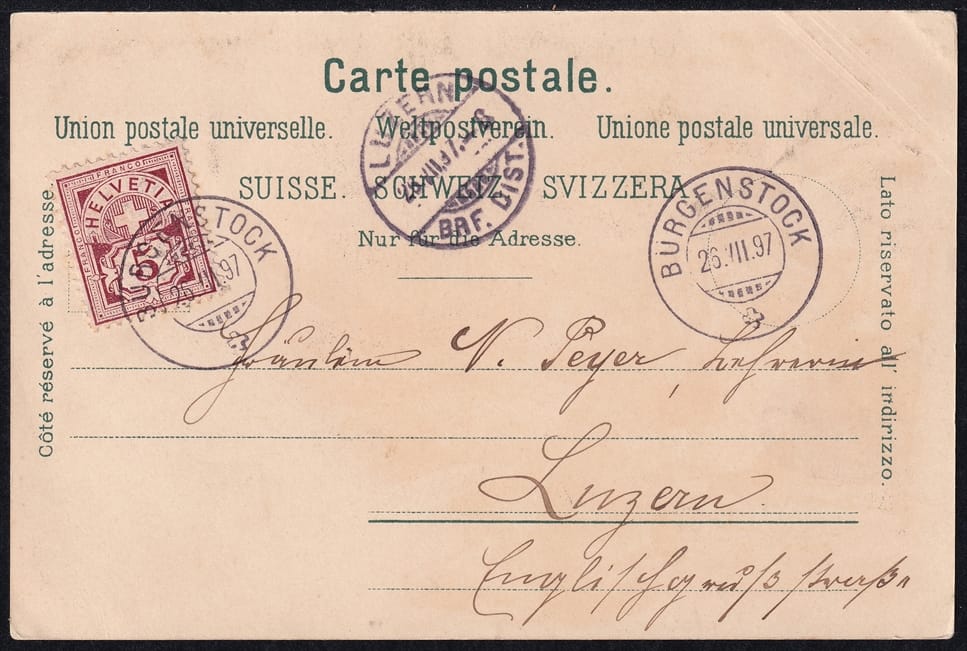 Carte postale.
Union postale universelle. Weltpostverein. Unione postale universale.
SUISSE. SCHWEIZ. SVIZZERA
Nur für die Adresse.
Côté réservé à l'adresse.
Lato riservato all' indirizzo.
FRANCO
HELVETIA
FRANCO
5
BÜRGENSTOCK
26.VII.97
LUZERN
VII.97.
BRF. DIST.
BÜRGENSTOCK
26.VII.97
Fräulein N. Peyer, Lehrerin
Luzern
Englischgrußstraße